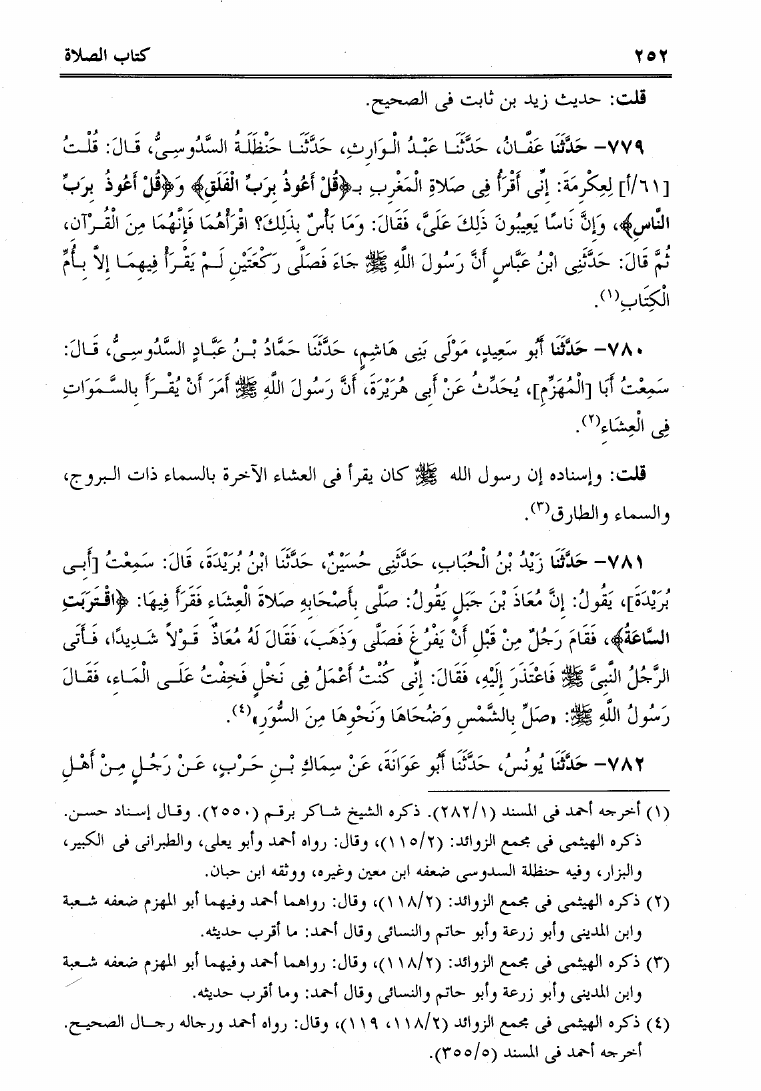 ٢٥٢ كتاب الصلاة
قلت: حديث زيد بن ثابت فى الصحيح.
٧٧٩- حَدَّثَنَا عَفَّـانُ، حَدَّثَنَـا عَبْـدُ الْـوَارِثِ، حَدَّثَنَـا حَنْظَلَـةُ السَّدُوسِـىُّ، قَـالَ: قُلْـتُ
[٦١/أ] لِعِكْرِمَةَ: إِنِّى أَقْرَأُ فِى صَلاَةِ الْمَغْرِبِ بـ﴿قُلْ أَعُوذُ بِرَبِّ الْفَلَقِ﴾ وَ﴿قُلْ أَعُوذُ بِرَبِّ
النَّاسِ﴾، وَإِنَّ نَاسًا يَعِيبُونَ ذَلِكَ عَلَىَّ، فَقَالَ: وَمَا بَأْسٌ بِذَلِكَ؟ اقْرَأْهُمَا فَإِنَّهُمَا مِنَ الْقُـرْآنِ،
ثُمَّ قَالَ: حَدَّثَنِى ابْنُ عَبَّاسٍ أَنَّ رَسُولَ اللَّهِ ﷺ جَاءَ فَصَلَّى رَكْعَتَيْنِ لَـمْ يَقْـرَأْ فِيهِمَـا إِلاَّ بِـأُمِّ
الْكِتَابِ(١).
٧٨٠- حَدَّثَنَا أَبُو سَعِيدٍ، مَوْلَى بَنِى هَاشِمٍ، حَدَّثَنَا حَمَّادُ بْـنُ عَبَّـادٍ السَّدُوسِـىُّ، قَـالَ:
سَمِعْتُ أَبَا [الْمُهَزِّمِ]، يُحَدِّثُ عَنْ أَبِى هُرَيْرَةَ، أَنَّ رَسُولَ اللَّهِ ﷺ أَمَرَ أَنْ يُقْـرَأَ بِالسَّـمَوَاتِ
فِى الْعِشَاءِ(٢).
قلت: وإسناده إن رسول الله ﷺ كان يقرأ فى العشاء الآخرة بالسماء ذات الـبروج،
والسماء والطارق(٣).
٧٨١- حَدَّثَنَا زَيْدُ بْنُ الْحُبَابِ، حَدَّثَنِى حُسَيْنٌ، حَدَّثَنَا ابْنُ بُرَيْدَةَ، قَالَ: سَمِعْتُ [أَبِـى
بُرَيْدَةَ]، يَقُولُ: إِنَّ مُعَاذَ بْنَ جَبَلٍ يَقُولُ: صَلَّى بِأَصْحَابِهِ صَلاَةَ الْعِشَاءِ فَقَرَأَ فِيهَا: ﴿اقْـتَرَبَتِ
السَّاعَةُ﴾، فَقَامَ رَجُلٌ مِنْ قَبْلِ أَنْ يَفْرُغَ فَصَلَّى وَذَهَبَ، فَقَالَ لَهُ مُعَاذٌ قَـوْلاً شَـدِيدًا، فَـأَتَى
الرَّجُلُ النَّبِىَّ ﷺ فَاعْتَذَرَ إِلَيْهِ، فَقَالَ: إِنِّى كُنْتُ أَعْمَلُ فِى نَخْلٍ فَخِفْتُ عَلَـى الْمَـاءِ، فَقَـالَ
رَسُولُ اللَّهِ ﷺ: «صَلِّ بِالشَّمْسِ وَضُحَاهَا وَنَحْوِهَا مِنَ السُّوَرِ»(٤).
٧٨٢- حَدَّثَنَا يُونُسُ، حَدَّثَنَا أَبُو عَوَانَةَ، عَنْ سِمَاكِ بْـنِ حَـرْبٍ، عَـنْ رَجُـلٍ مِـنْ أَهْـلِ
(١) أخرجه أحمد فى المسند (٢٨٢/١). ذكره الشيخ شـاكر برقـم (٢٥٥٠). وقـال إسـناد حسـن.
ذكره الهيثمى فى مجمع الزوائد: (١١٥/٢)، وقال: رواه أحمد وأبو يعلى، والطبرانى فى الكبير،
والبزار، وفيه حنظلة السدوسى ضعفه ابن معين وغيره، ووثقه ابن حبان.
(٢) ذكره الهيثمى فى مجمع الزوائد: (١١٨/٢)، وقال: رواهما أحمد وفيهما أبو المهزم ضعفه شـعبة
وابن المدينى وأبو زرعة وأبو حاتم والنسائى وقال أحمد: ما أقرب حديثه.
(٣) ذكره الهيثمى فى مجمع الزوائد: (١١٨/٢)، وقال: رواهما أحمد وفيهما أبو المهزم ضعفه شـعبة
وابن المدينى وأبو زرعة وأبو حاتم والنسائى وقال أحمد: وما أقرب حديثه.
(٤) ذكره الهيثمى فى مجمع الزوائد (١١٨/٢، ١١٩)، وقال: رواه أحمد ورجاله رجـال الصحيـح.
أخرجه أحمد فى المسند (٣٥٥/٥).